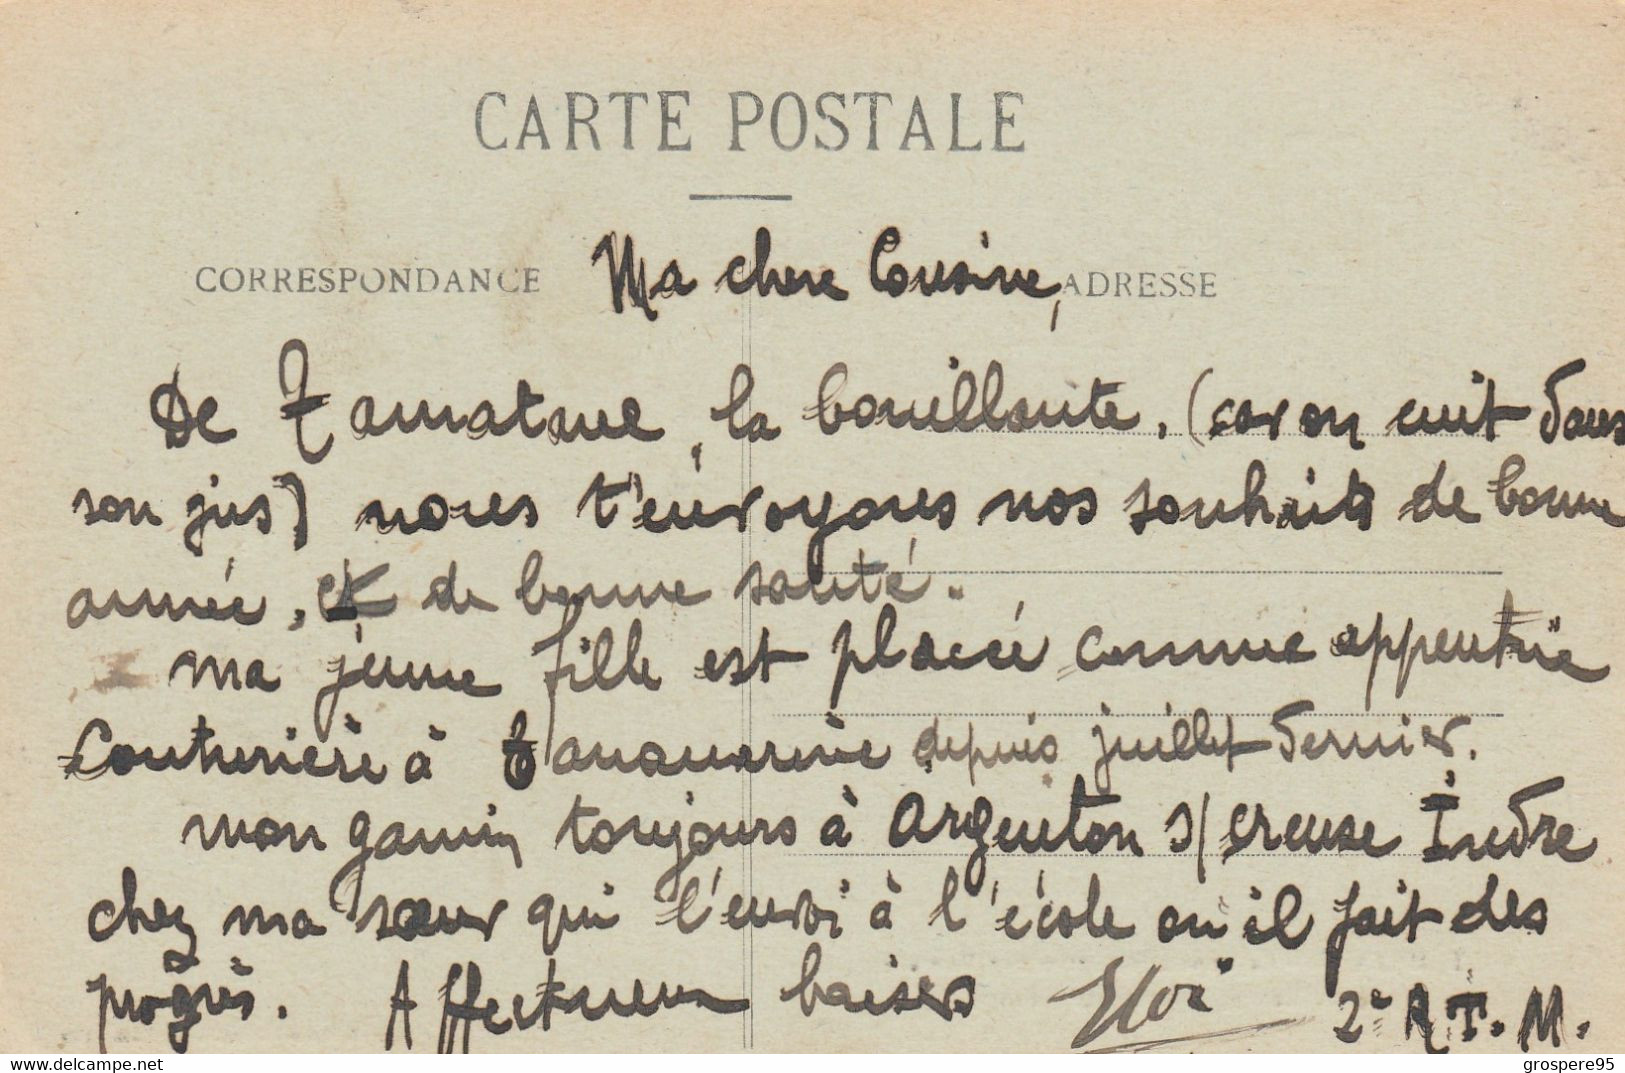 CARTE POSTALE
CORRESPONDANCE
ADRESSE
Ma chere Cousine,
De Tamatave, la bouillante, (car on cuit dans
son jus) nous t'envoyons nos souhaits de bonne
année, et de bonne santé.
ma jeune fille est placée comme apprentie
Couturière à Tananarive depuis juillet dernier.
mon gamin toujours à Argenton s/ creuse Indre
chez ma sœur qui l'envoi à l'école ou il fait des
progrès. Affectueux baisers Eloi 2e R.T.M.
www.delcampe.net
grospere95